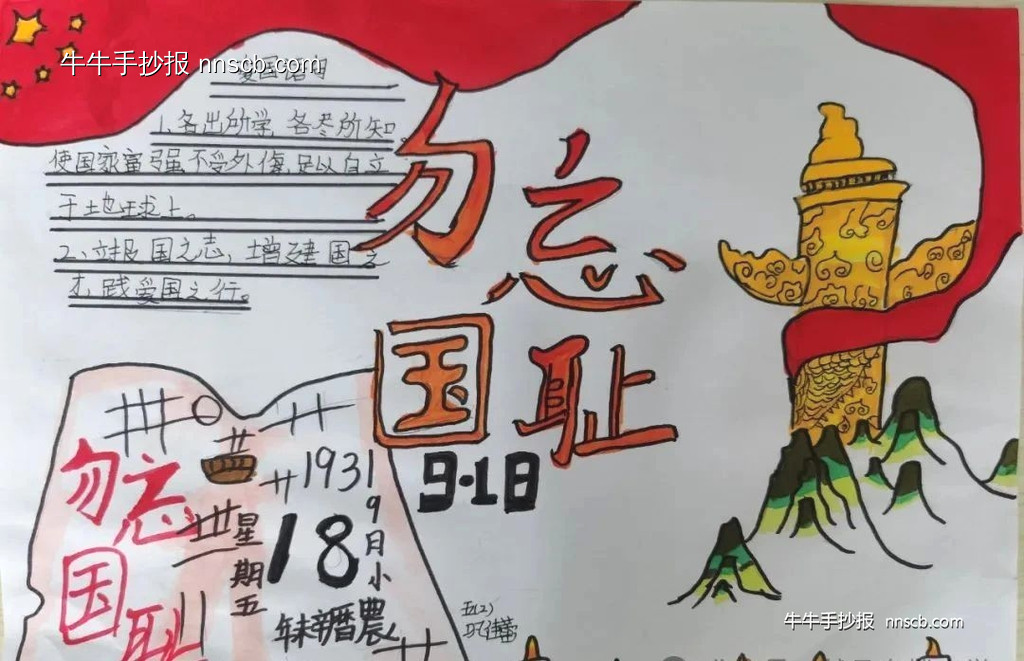 牛牛手抄报 nnscb.com
爱国名句
1、各出所学,各尽所知,
使国家富强不受外侮,足以自立
于地球上。
2、立报国之志,增建国之
才,践爱国之行。
勿忘
国耻
9·18
勿忘
国耻
星期五
1931
9月小
18
年未辛曆農
五(2)
牛牛手抄报 nnscb.com